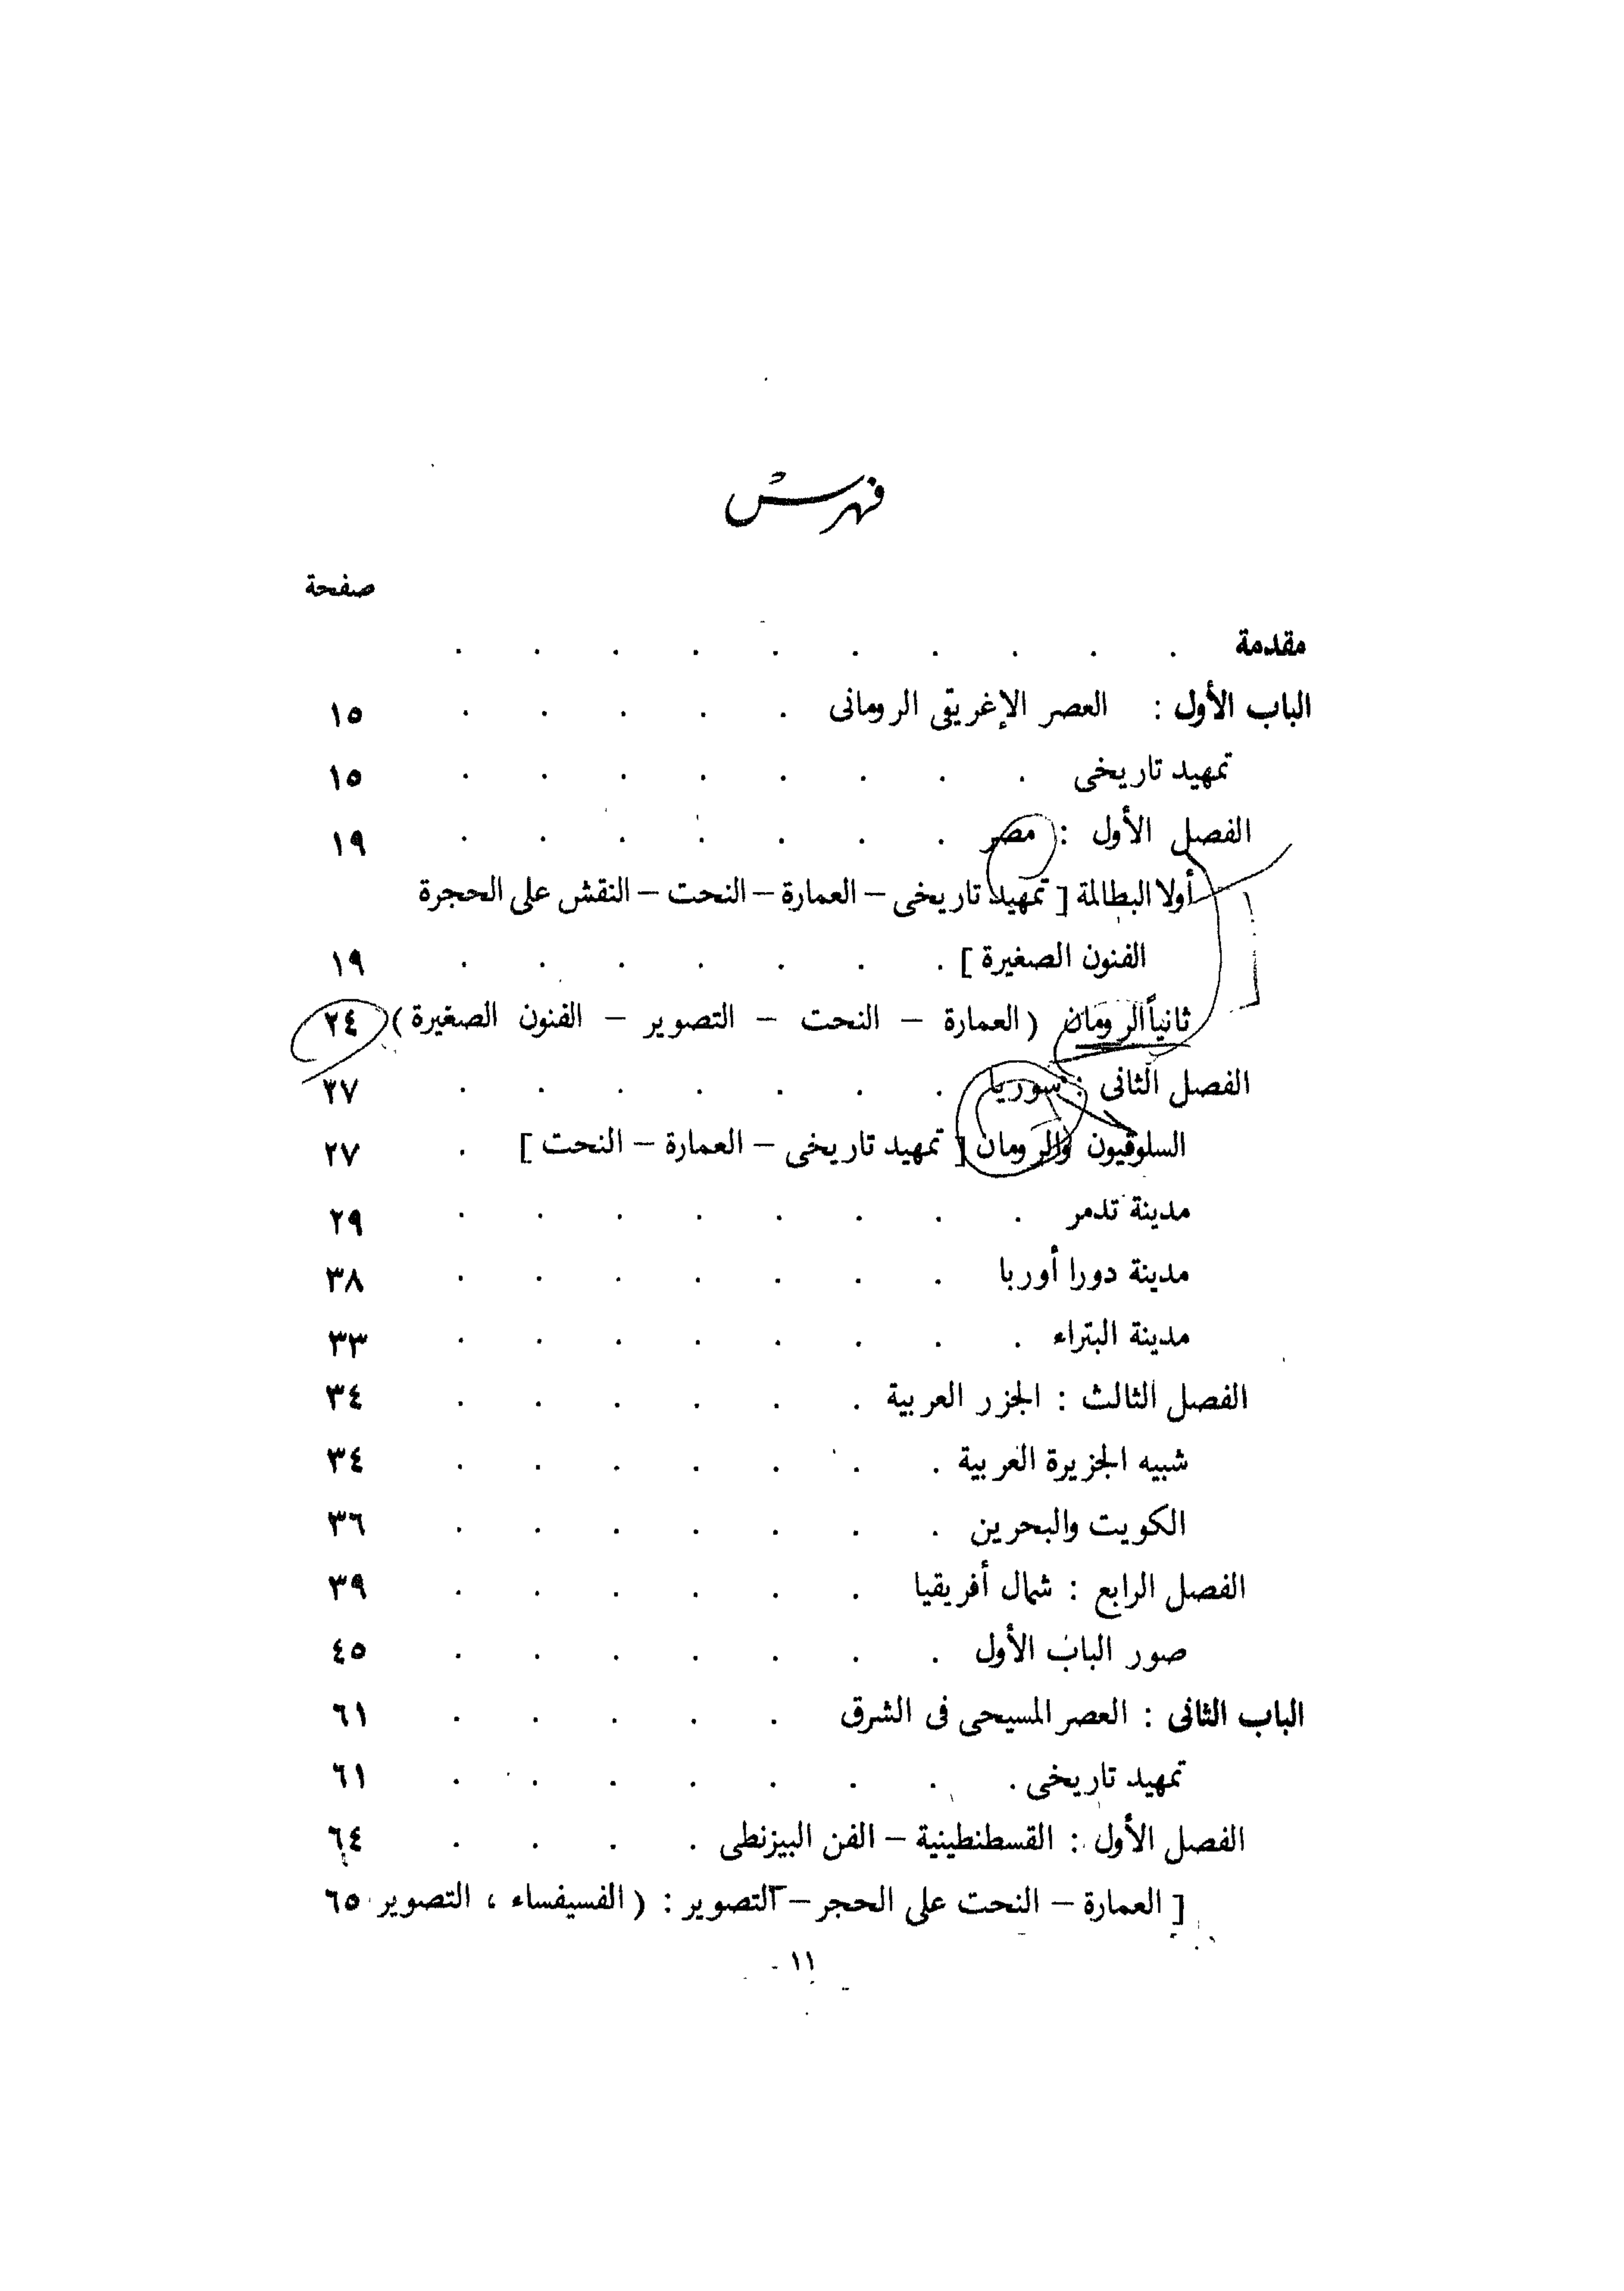 فهرس
صفحة
مقدمة . . . . . . . . . .
الباب الأول : العصر الإغريقى الرومانى . . . . . ١٥
تمهيد تاريخى . . . . . . . . ١٥
الفصل الأول : مصر . . . . . . . ١٩
أولا البطالمة [ تمهيد تاريخى – العمارة – النحت – النقش على الحجرة
الفنون الصغيرة ] . . . . . . . ١٩
ثانياً الرومان ( العمارة – النحت – التصوير – الفنون الصغيرة ) ٢٤
الفصل الثانى : سوريا . . . . . . . ٢٧
السلوقيون والرومان [ تمهيد تاريخى – العمارة – النحت ] . ٢٧
مدينة تدمر . . . . . . . . ٢٩
مدينة دورا أوربا . . . . . . . ٣٨
مدينة البتراء . . . . . . . . ٣٣
الفصل الثالث : الجزر العربية . . . . . . ٣٤
شبيه الجزيرة العربية . . . . . . . ٣٤
الكويت والبحرين . . . . . . . ٣٦
الفصل الرابع : شمال أفريقيا . . . . . . ٣٩
صور الباب الأول . . . . . . . ٤٥
الباب الثانى : العصر المسيحى فى الشرق . . . . . ٦١
تمهيد تاريخى . . . . . . . . ٦١
الفصل الأول : القسطنطينية – الفن البيزنطى . . . . ٦٤
[ العمارة – النحت على الحجر – التصوير : ( الفسيفساء ، التصوير ٦٥
١١